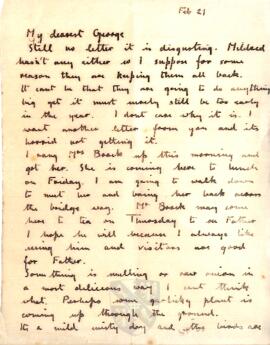 Feb 21
My dearest George
Still no letter it is disgusting. Mildred
hasn't any either so I suppose for some
reason they are keeping them all back.
It cant be that they are going to do anything
big yet it must surely still be too early
in the year. I dont care why it is. I
want another letter from you and its
horrid not getting it.
I rang Mrs up this morning and
got her. She is coming here to lunch
on Friday. I am going to walk down
to meet her and bring her back across
the bridge way. Mr may come
here to tea on Thursday to on Father
I hope he will because I always like
seeing him and visitors are good
for Father.
Something is smelling or raw onion in
a most delicious way I cant think
what. Perhaps some plant is
coming up through the ground.
Its a mild misty day and the birds are